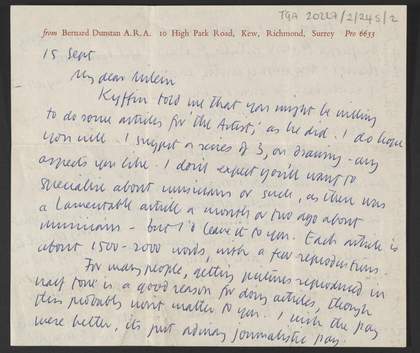 TGA 20227/2/245/2
from Bernard Dunstan A.R.A. 10 High Park Road, Kew, Richmond, Surrey Pro 6633
15 Sept
My dear Milein
Kyffin told me that you might be willing
to do some articles for 'the Artist', as he did. I do hope
you will. I suggest a series of 3, on drawing - any
aspects you like. I don't expect you'll want to
specialise about musicians or such, as there was
a lamentable article a month or two ago about
musicians - but I'd leave it to you. Each article is
about 1500-2000 words, with a few reproductions.
For many people, getting pictures reproduced in
half tone is a good reason for doing articles, though
this probably won't matter to you. I wish the pay
were better, its just ordinary journalistic pay.